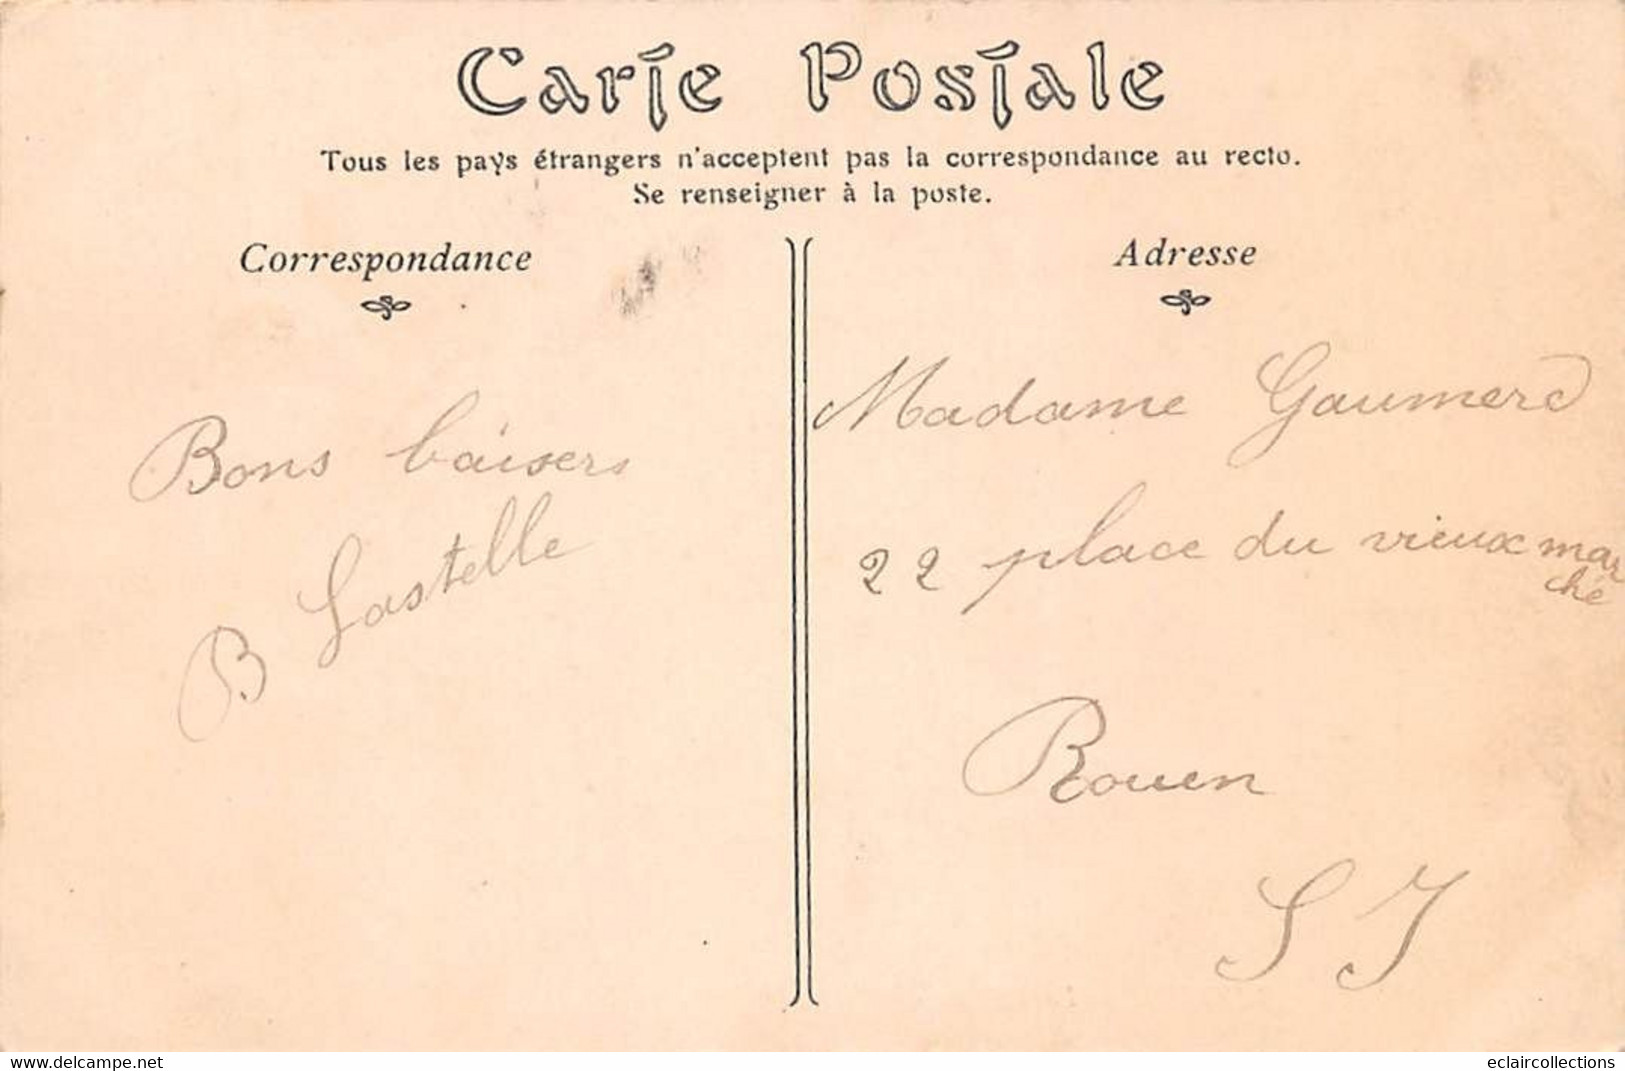 Carte Postale
Tous les pays étrangers n'acceptent pas la correspondance au recto.
Se renseigner à la poste.
Correspondance
Adresse
Bons baisers
B Lastelle
Madame Gaumerd
22 place du vieux mar
ché
Rouen
S I
www.delcampe.net
eclaircollections